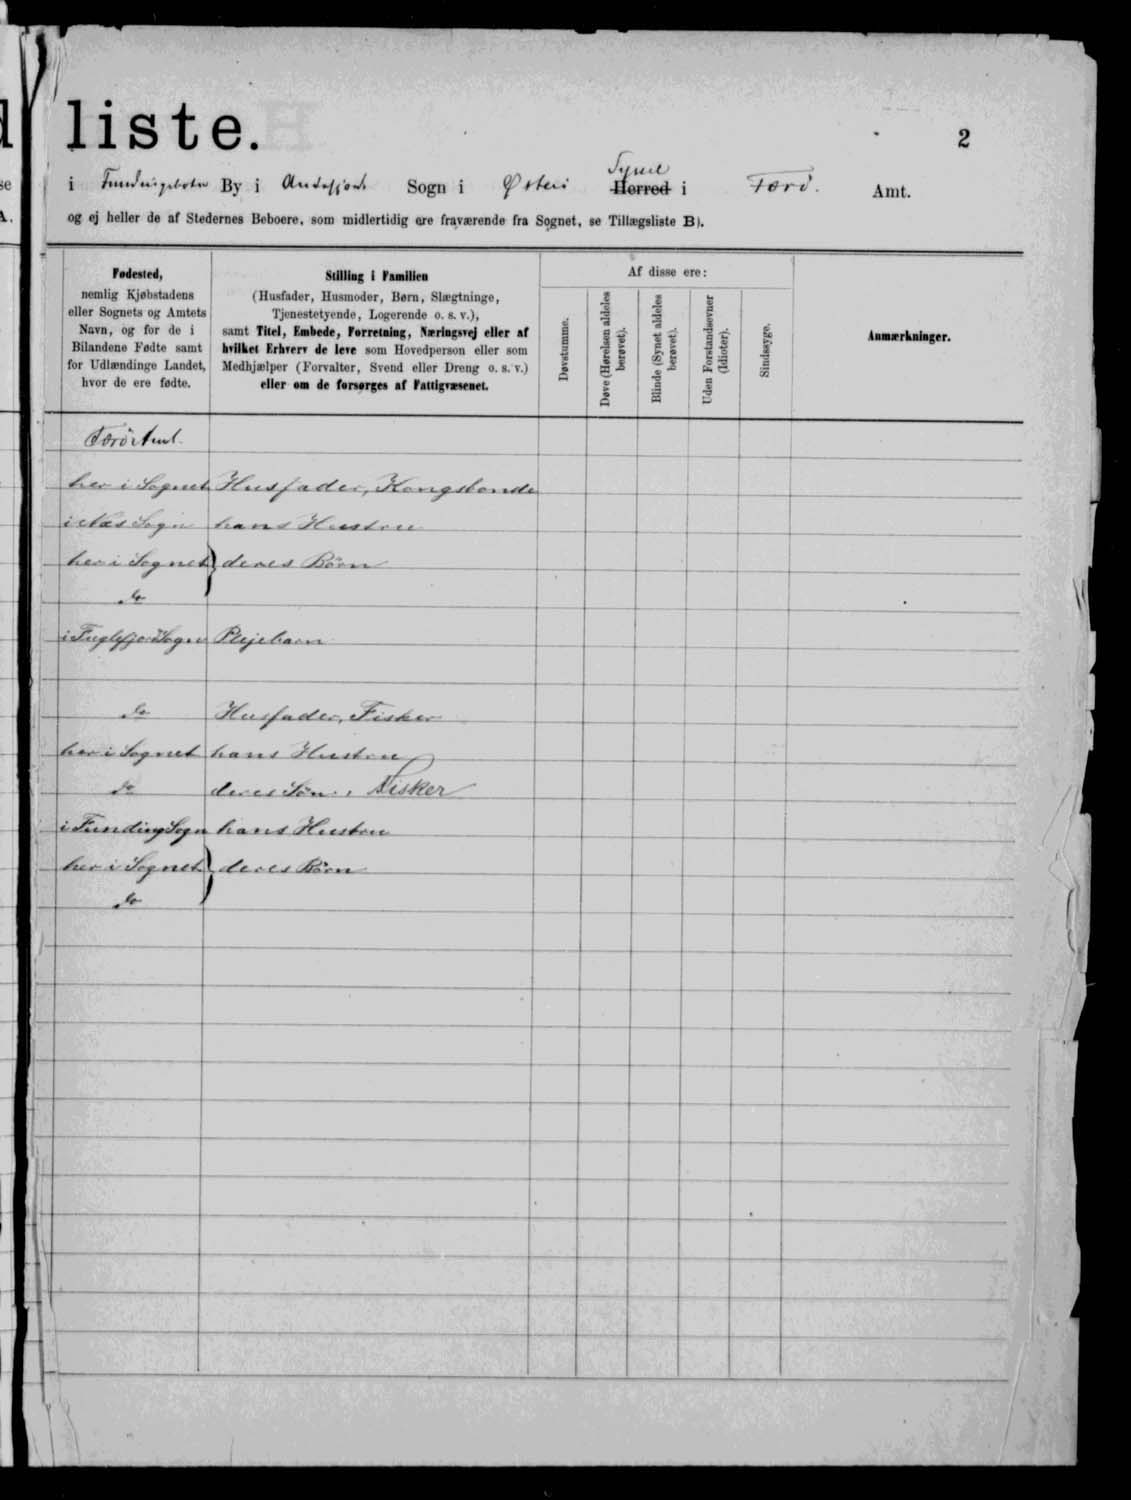 liste.
2
i Fundingsbotn By i Andefjord Sogn i Østerø Herred Syssel i Færø. Amt.
og ej heller de af Stedernes Beboere, som midlertidig ere fraværende fra Sognet, se Tillægsliste B).
Fødested,
nemlig Kjøbstadens
eller Sognets og Amtets
Navn, og for de i
Bilandene Fødte samt
for Udlændinge Landet,
hvor de ere fødte.
Stilling i Familien
(Husfader, Husmoder, Børn, Slægtninge,
Tjenestetyende, Logerende o. s. v.),
samt Titel, Embede, Forretning, Næringsvej eller af
hvilket Erhverv de leve som Hovedperson eller som
Medhjælper (Forvalter, Svend eller Dreng o. s. v.)
eller om de forsørges af Fattigvæsenet.
Af disse ere:
Døvstumme.
Døve (Hørelsen aldeles
berøvet).
Blinde (Synet aldeles
berøvet).
Uden Forstandsevner
(Idioter).
Sindssyge.
Anmærkninger.
Færö Amt.
her i Sognet Husfader, Kongsbonde
i Næs Sogn hans Hustru
her i Sognet } deres Börn
do
i Fuglefjord Sogn Plejebarn
do Husfader, Fisker
her i Sognet hans Hustru
do deres Sön, Fisker
i Funding Sogn hans Hustru
her i Sognet } deres Börn
do